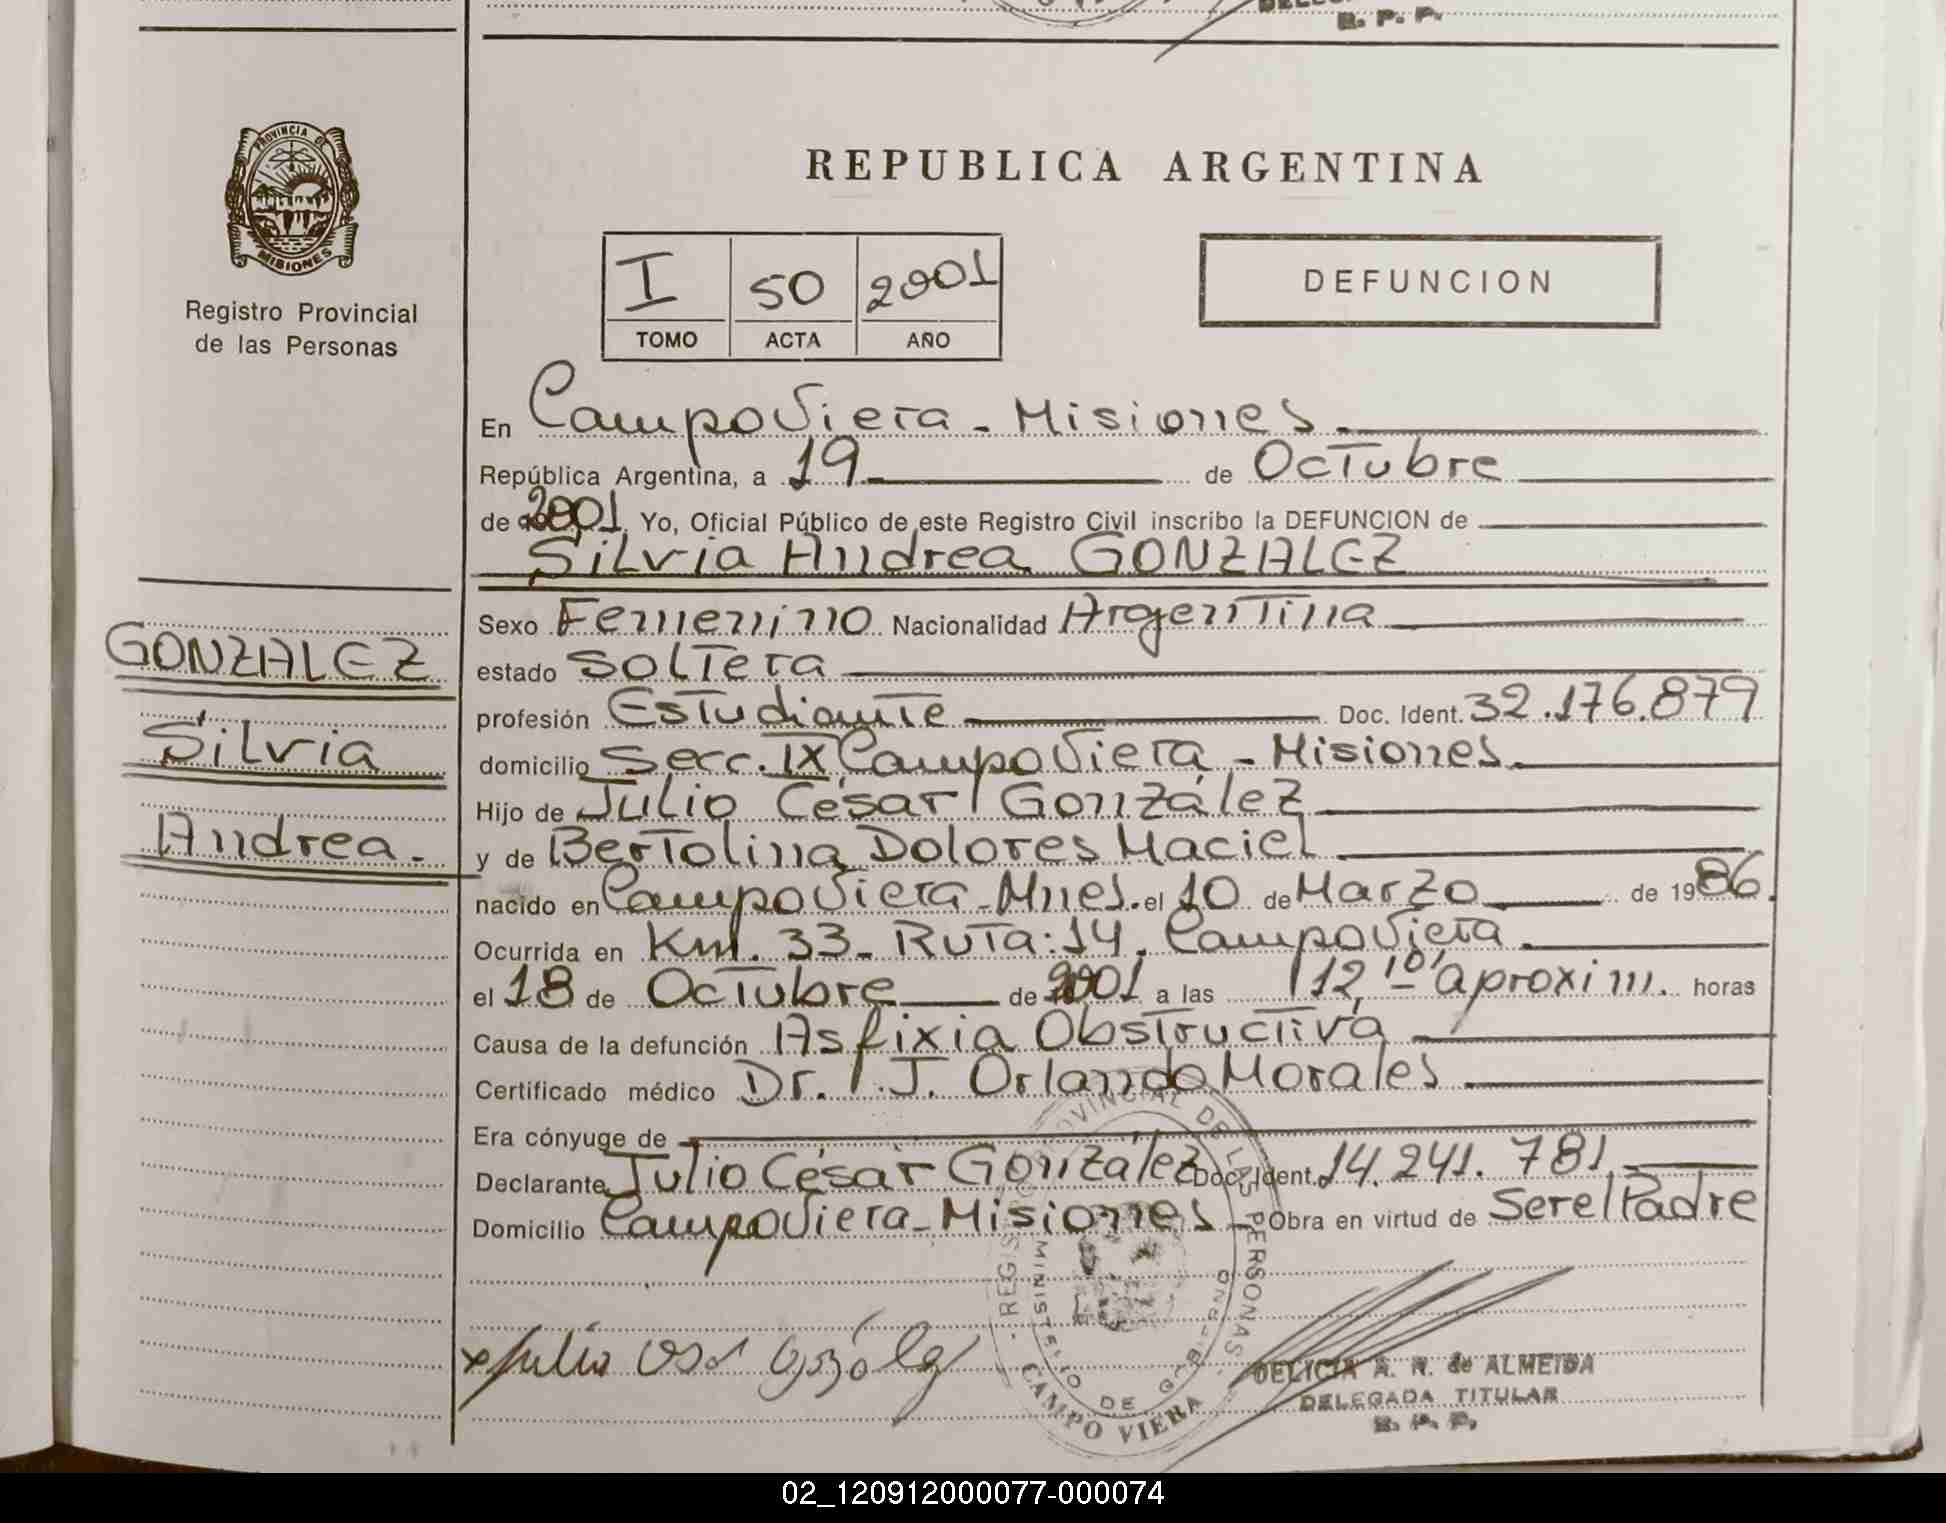 R. P. P.
PROVINCIA DE
MISIONES
Registro Provincial
de las Personas
REPUBLICA ARGENTINA
I 50 2001
TOMO ACTA AÑO
DEFUNCION
En Campo Viera - Misiones
República Argentina, a 19 de Octubre
de 2001 Yo, Oficial Público de este Registro Civil inscribo la DEFUNCION de
Silvia Andrea GONZALEZ
GONZALEZ
Silvia
Andrea.
Sexo Femenino Nacionalidad Argentina
estado Soltera
profesión Estudiante Doc. Ident. 32.176.879
domicilio Secc. IX Campo Viera - Misiones
Hijo de Julio César González
y de Bertolina Dolores Maciel
nacido en Campo Viera - Mnes. el 10 de Marzo de 1986.
Ocurrida en Km. 33 - Ruta: 14. Campo Viera
el 18 de Octubre de 2001 a las 12,10' aproxim. horas
Causa de la defunción Asfixia Obstructiva
Certificado médico Dr. J. Orlando Morales
Era cónyuge de
Declarante Julio César González Doc. Ident. 14.241.781
Domicilio Campo Viera - Misiones Obra en virtud de Ser el Padre
REGISTRO PROVINCIAL DE LAS PERSONAS
MINISTERIO DE GOBIERNO
CAMPO VIERA
DELICIA A. N. de ALMEIDA
DELEGADA TITULAR
R. P. P.
02_120912000077-000074